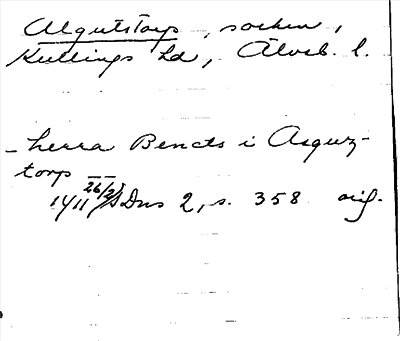 Algutstorp, socken,
Kullings hd, Älvsb. l.
– herra Bencts i Asguz-
torp — —
1411 26/2 SDns 2, s. 358 orig.